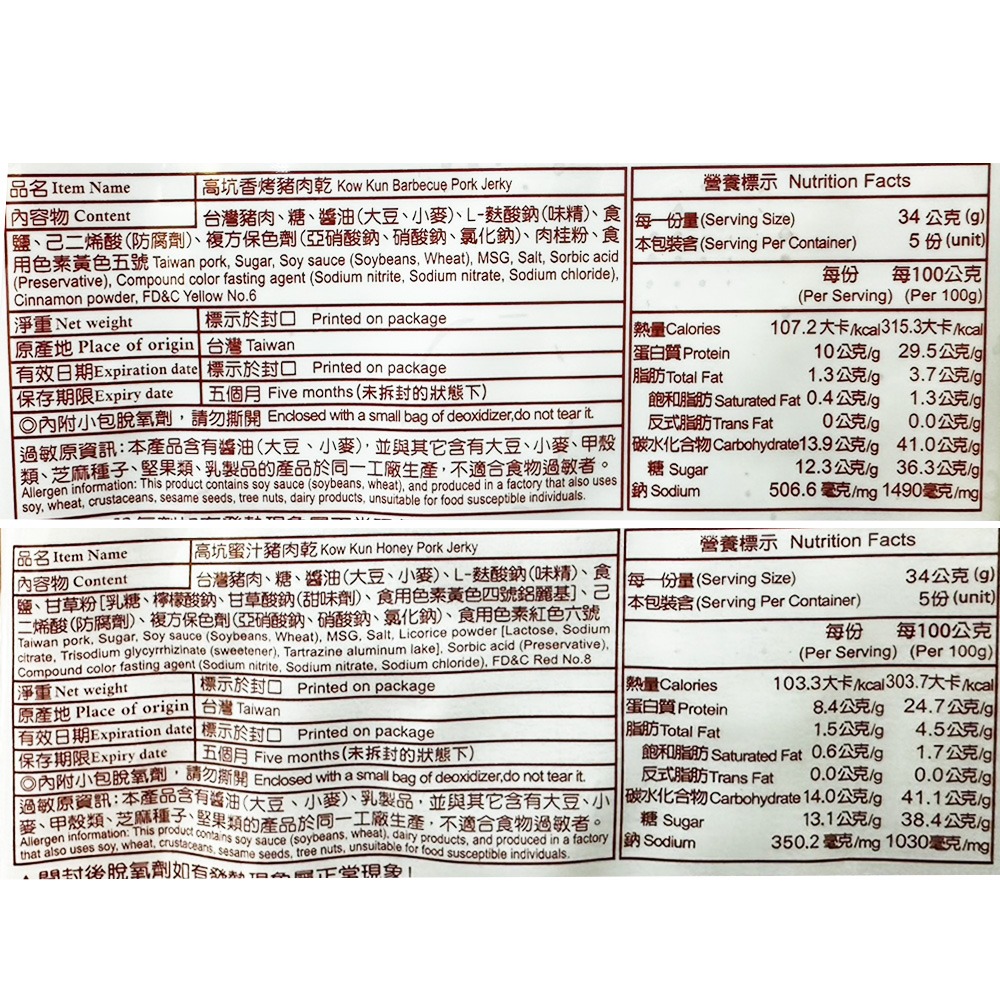 品名 Item Name 高坑香烤豬肉乾 Kow Kun Barbecue Pork Jerky
內容物 Content 台灣豬肉、糖、醬油(大豆、小麥)、L-麩酸鈉(味精)、食
鹽、己二烯酸(防腐劑)、複方保色劑(亞硝酸鈉、硝酸鈉、氯化鈉)、肉桂粉、食
用色素黃色五號 Taiwan pork, Sugar, Soy sauce (Soybeans, Wheat), MSG, Salt, Sorbic acid
(Preservative), Compound color fasting agent (Sodium nitrite, Sodium nitrate, Sodium chloride),
Cinnamon powder, FD&C Yellow No.6
淨重 Net weight 標示於封口 Printed on package
原產地 Place of origin 台灣 Taiwan
有效日期Expiration date 標示於封口 Printed on package
保存期限Expiry date 五個月 Five months (未拆封的狀態下)
◎內附小包脫氧劑，請勿撕開 Enclosed with a small bag of deoxidizer,do not tear it.
過敏原資訊：本產品含有醬油(大豆、小麥)，並與其它含有大豆、小麥、甲殼
類、芝麻種子、堅果類、乳製品的產品於同一工廠生產，不適合食物過敏者。
Allergen information: This product contains soy sauce (soybeans, wheat), and produced in a factory that also uses
soy, wheat, crustaceans, sesame seeds, tree nuts, dairy products, unsuitable for food susceptible individuals.
營養標示 Nutrition Facts
每一份量(Serving Size) 34 公克(g)
本包裝含(Serving Per Container) 5 份(unit)
每份 每100公克
(Per Serving) (Per 100g)
熱量Calories 107.2大卡/kcal 315.3大卡/kcal
蛋白質Protein 10公克/g 29.5公克/g
脂肪Total Fat 1.3公克/g 3.7公克/g
飽和脂肪 Saturated Fat 0.4公克/g 1.3公克/g
反式脂肪Trans Fat 0公克/g 0.0公克/g
碳水化合物Carbohydrate 13.9公克/g 41.0公克/g
糖 Sugar 12.3公克/g 36.3公克/g
鈉 Sodium 506.6 毫克/mg 1490毫克/mg
品名 Item Name 高坑蜜汁豬肉乾 Kow Kun Honey Pork Jerky
內容物 Content 台灣豬肉、糖、醬油(大豆、小麥)、L-麩酸鈉(味精)、食
鹽、甘草粉[乳糖、檸檬酸鈉、甘草酸鈉(甜味劑)、食用色素黃色四號鋁麗基]、己
二烯酸(防腐劑)、複方保色劑(亞硝酸鈉、硝酸鈉、氯化鈉)、食用色素紅色六號
Taiwan pork, Sugar, Soy sauce (Soybeans, Wheat), MSG, Salt, Licorice powder [Lactose, Sodium
citrate, Trisodium glycyrrhizinate (sweetener), Tartrazine aluminum lake], Sorbic acid (Preservative),
Compound color fasting agent (Sodium nitrite, Sodium nitrate, Sodium chloride), FD&C Red No.8
淨重 Net weight 標示於封口 Printed on package
原產地 Place of origin 台灣 Taiwan
有效日期Expiration date 標示於封口 Printed on package
保存期限Expiry date 五個月 Five months (未拆封的狀態下)
◎內附小包脫氧劑，請勿撕開 Enclosed with a small bag of deoxidizer,do not tear it.
過敏原資訊：本產品含有醬油(大豆、小麥)、乳製品，並與其它含有大豆、小
麥、甲殼類、芝麻種子、堅果類的產品於同一工廠生產，不適合食物過敏者。
Allergen information: This product contains soy sauce (soybeans, wheat), dairy products, and produced in a factory
that also uses soy, wheat, crustaceans, sesame seeds, tree nuts, unsuitable for food susceptible individuals.
開封後脫氧劑如有發熱現象屬正常現象!
營養標示 Nutrition Facts
每一份量(Serving Size) 34公克(g)
本包裝含(Serving Per Container) 5份(unit)
每份 每100公克
(Per Serving) (Per 100g)
熱量Calories 103.3大卡/kcal 303.7大卡/kcal
蛋白質Protein 8.4公克/g 24.7公克/g
脂肪Total Fat 1.5公克/g 4.5公克/g
飽和脂肪 Saturated Fat 0.6公克/g 1.7公克/g
反式脂肪Trans Fat 0.0公克/g 0.0公克/g
碳水化合物Carbohydrate 14.0公克/g 41.1公克/g
糖 Sugar 13.1公克/g 38.4公克/g
鈉 Sodium 350.2 毫克/mg 1030毫克/mg